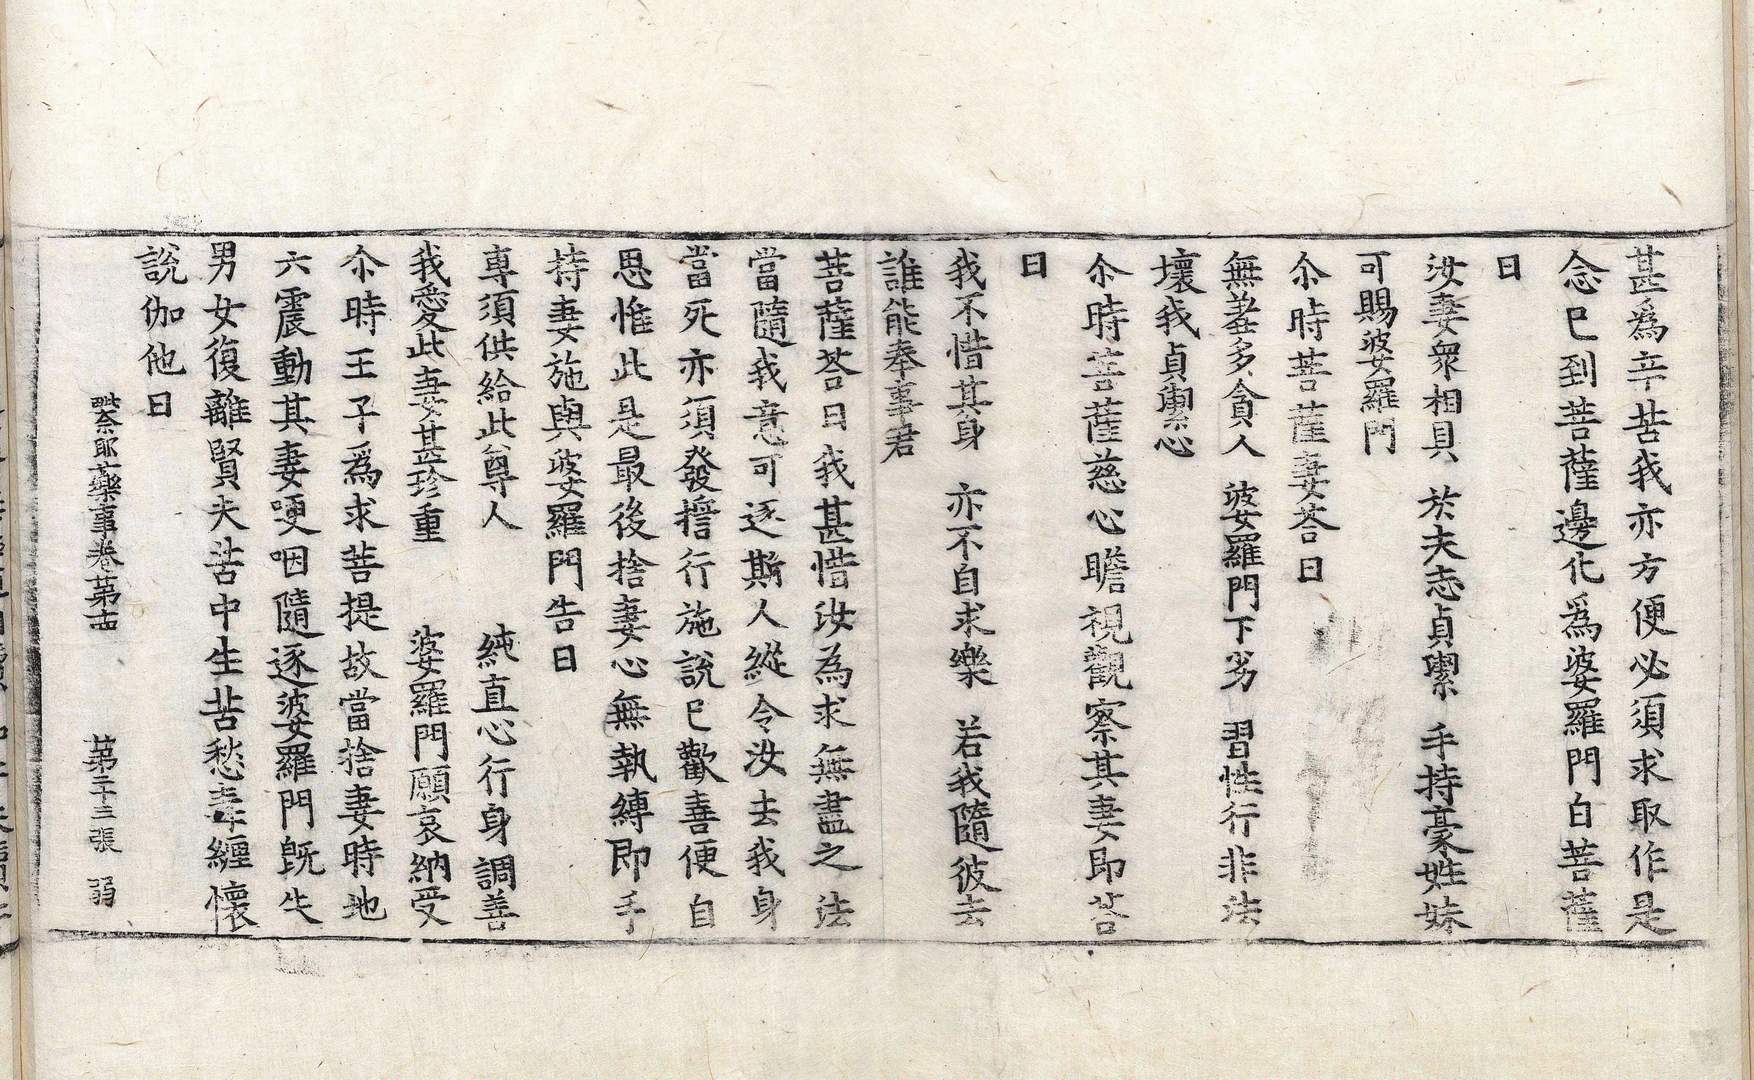 甚爲辛苦我亦方便必須求取作是
念已到菩薩邊化爲婆羅門白菩薩
曰
汝妻衆相具 於夫志貞潔 手持豪姓妹
可賜婆羅門
尒時菩薩妻荅曰
無羞多貪人 婆羅門下劣 習性行非法
壞我貞潔心
尒時菩薩慈心瞻視觀察其妻即荅
曰
我不惜其身 亦不自求樂 若我隨彼去
誰能奉事君
菩薩荅曰我甚惜汝為求無盡之法
當隨我意可逐斯人縱令汝去我身
當死亦須發擔行施說已歡喜便自
思惟此是最後捨妻心無執縛即手
持妻施與婆羅門告曰
專須供給此尊人 純直心行身調善
我愛此妻甚珍重 婆羅門願哀納受
尒時王子爲求菩提故當捨妻時地
六震動其妻哽咽隨逐婆羅門旣失
男女復離賢夫苦中生苦愁毒纏懷
說伽他曰
毗奈耶藥事卷苐十四 苐二十三張 弱